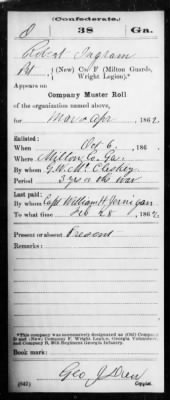 (Confederate.)
38 Ga.
Robert Ingram
Pvt., (New) Co. F (Milton Guards,
Wright Legion).*
Appears on
Company Muster Roll
of the organization named above,
for Mar & Apr, 1862.
Enlisted:
When Oct 6, 186
Where Milton Co. Ga.
By whom G.W. McCleskey
Period 3 yrs or the War
Last paid:
By whom Capt. William H. Jernigan
To what time Feb 28, 1862.
Present or absent Present
Remarks:
*This company was successively designated as (Old) Company
D and (New) Company F, Wright Legion, Georgia Volunteers,
and Company F, 38th Regiment Georgia Infantry.
Book mark:
(642) Geo J Drew
Copyist.